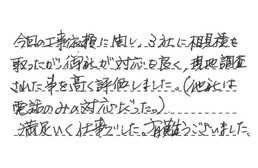 今回の工事依頼に関し、3社に相見積を
取ったが御社が対応も良く、現地調査
された事を高く評価しました。(他社は
電話のみの対応だった。)
満足いく仕事でした。有難うございました。